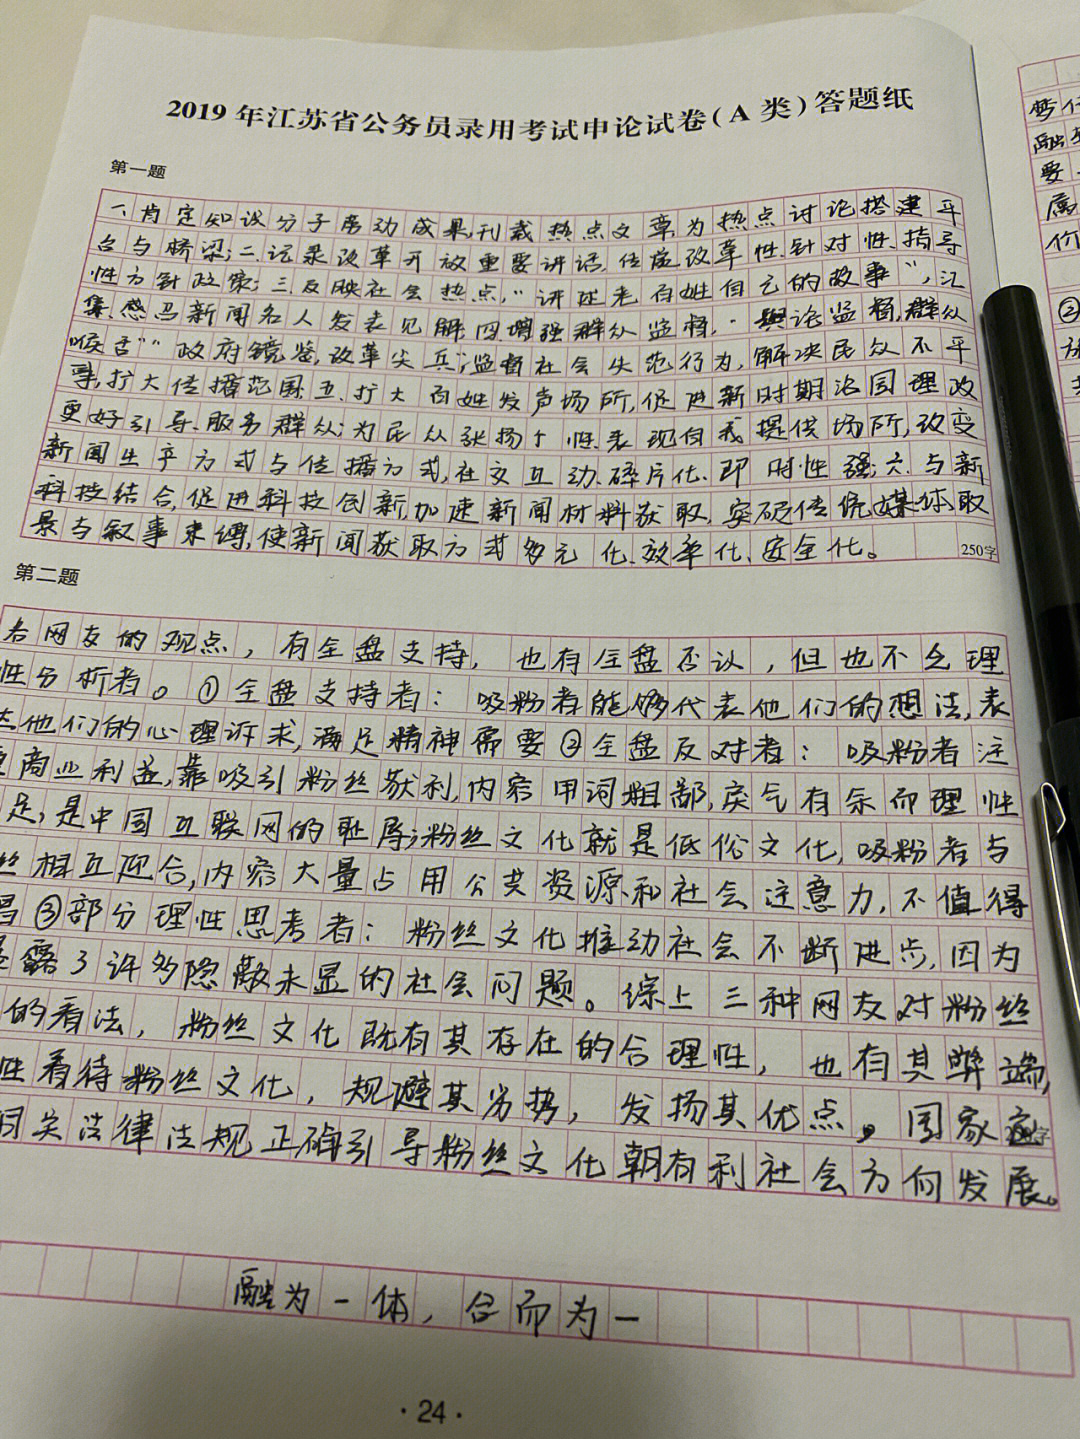 2019年江苏省公务员录用考试申论试卷(A 类)答题纸
第一题
一、肯定知识分子劳动成果,刊载热点文章,为热点讨论搭建平
台与桥梁;二、记录改革开放重要讲话,传播改革性、针对性、指导
性方针政策;三、反映社会热点,“讲述老百姓自己的故事”,汇
集 新闻名人发表见解;四、增强群众监督,舆论监督,群众
喉舌”“政府镜鉴,改革尖兵”;监督社会失范行为,解决民众不平
事,扩大传播范围;五、扩大百姓发声场所,促进新时期治国理政
更好引导、服务群众;为民众张扬个性、表现自我提供场所,改变
新闻生产方式与传播方式,社交互动、碎片化、即时性强;六、与新
科技结合,促进科技创新,加速新闻材料获取,突破传统媒体取
景与叙事束缚,使新闻获取方式多元化、效率化、安全化。
250字
第二题
各网友的观点,有全盘支持,也有全盘否认,但也不乏理
性分析者。①全盘支持者:吸粉者能够代表他们的想法,表
达他们的心理诉求,满足精神需要②全盘反对者:吸粉者注
重商业利益,靠吸引粉丝获利,内容用词粗鄙,戾气有余而理性
足,是中国互联网的耻辱;粉丝文化就是低俗文化,吸粉者与
丝相互迎合,内容大量占用公共资源和社会注意力,不值得
③部分理性思考者:粉丝文化推动社会不断进步,因为
露了许多隐蔽未显的社会问题。综上三种网友对粉丝
的看法,粉丝文化既有其存在的合理性,也有其弊端,
性看待粉丝文化,规避其劣势,发扬其优点。国家应
关法律法规正确引导粉丝文化朝有利社会方向发展。
融为一体,合而为一
·24·
梦
融
要
属
价
②